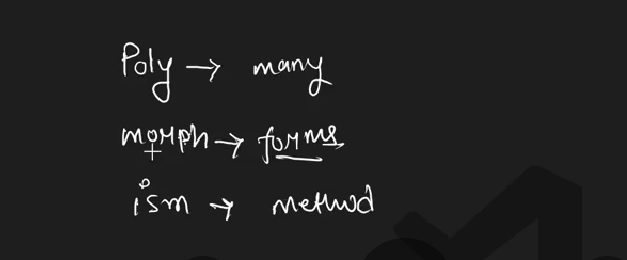 Poly → many
morph → forms
ism → method